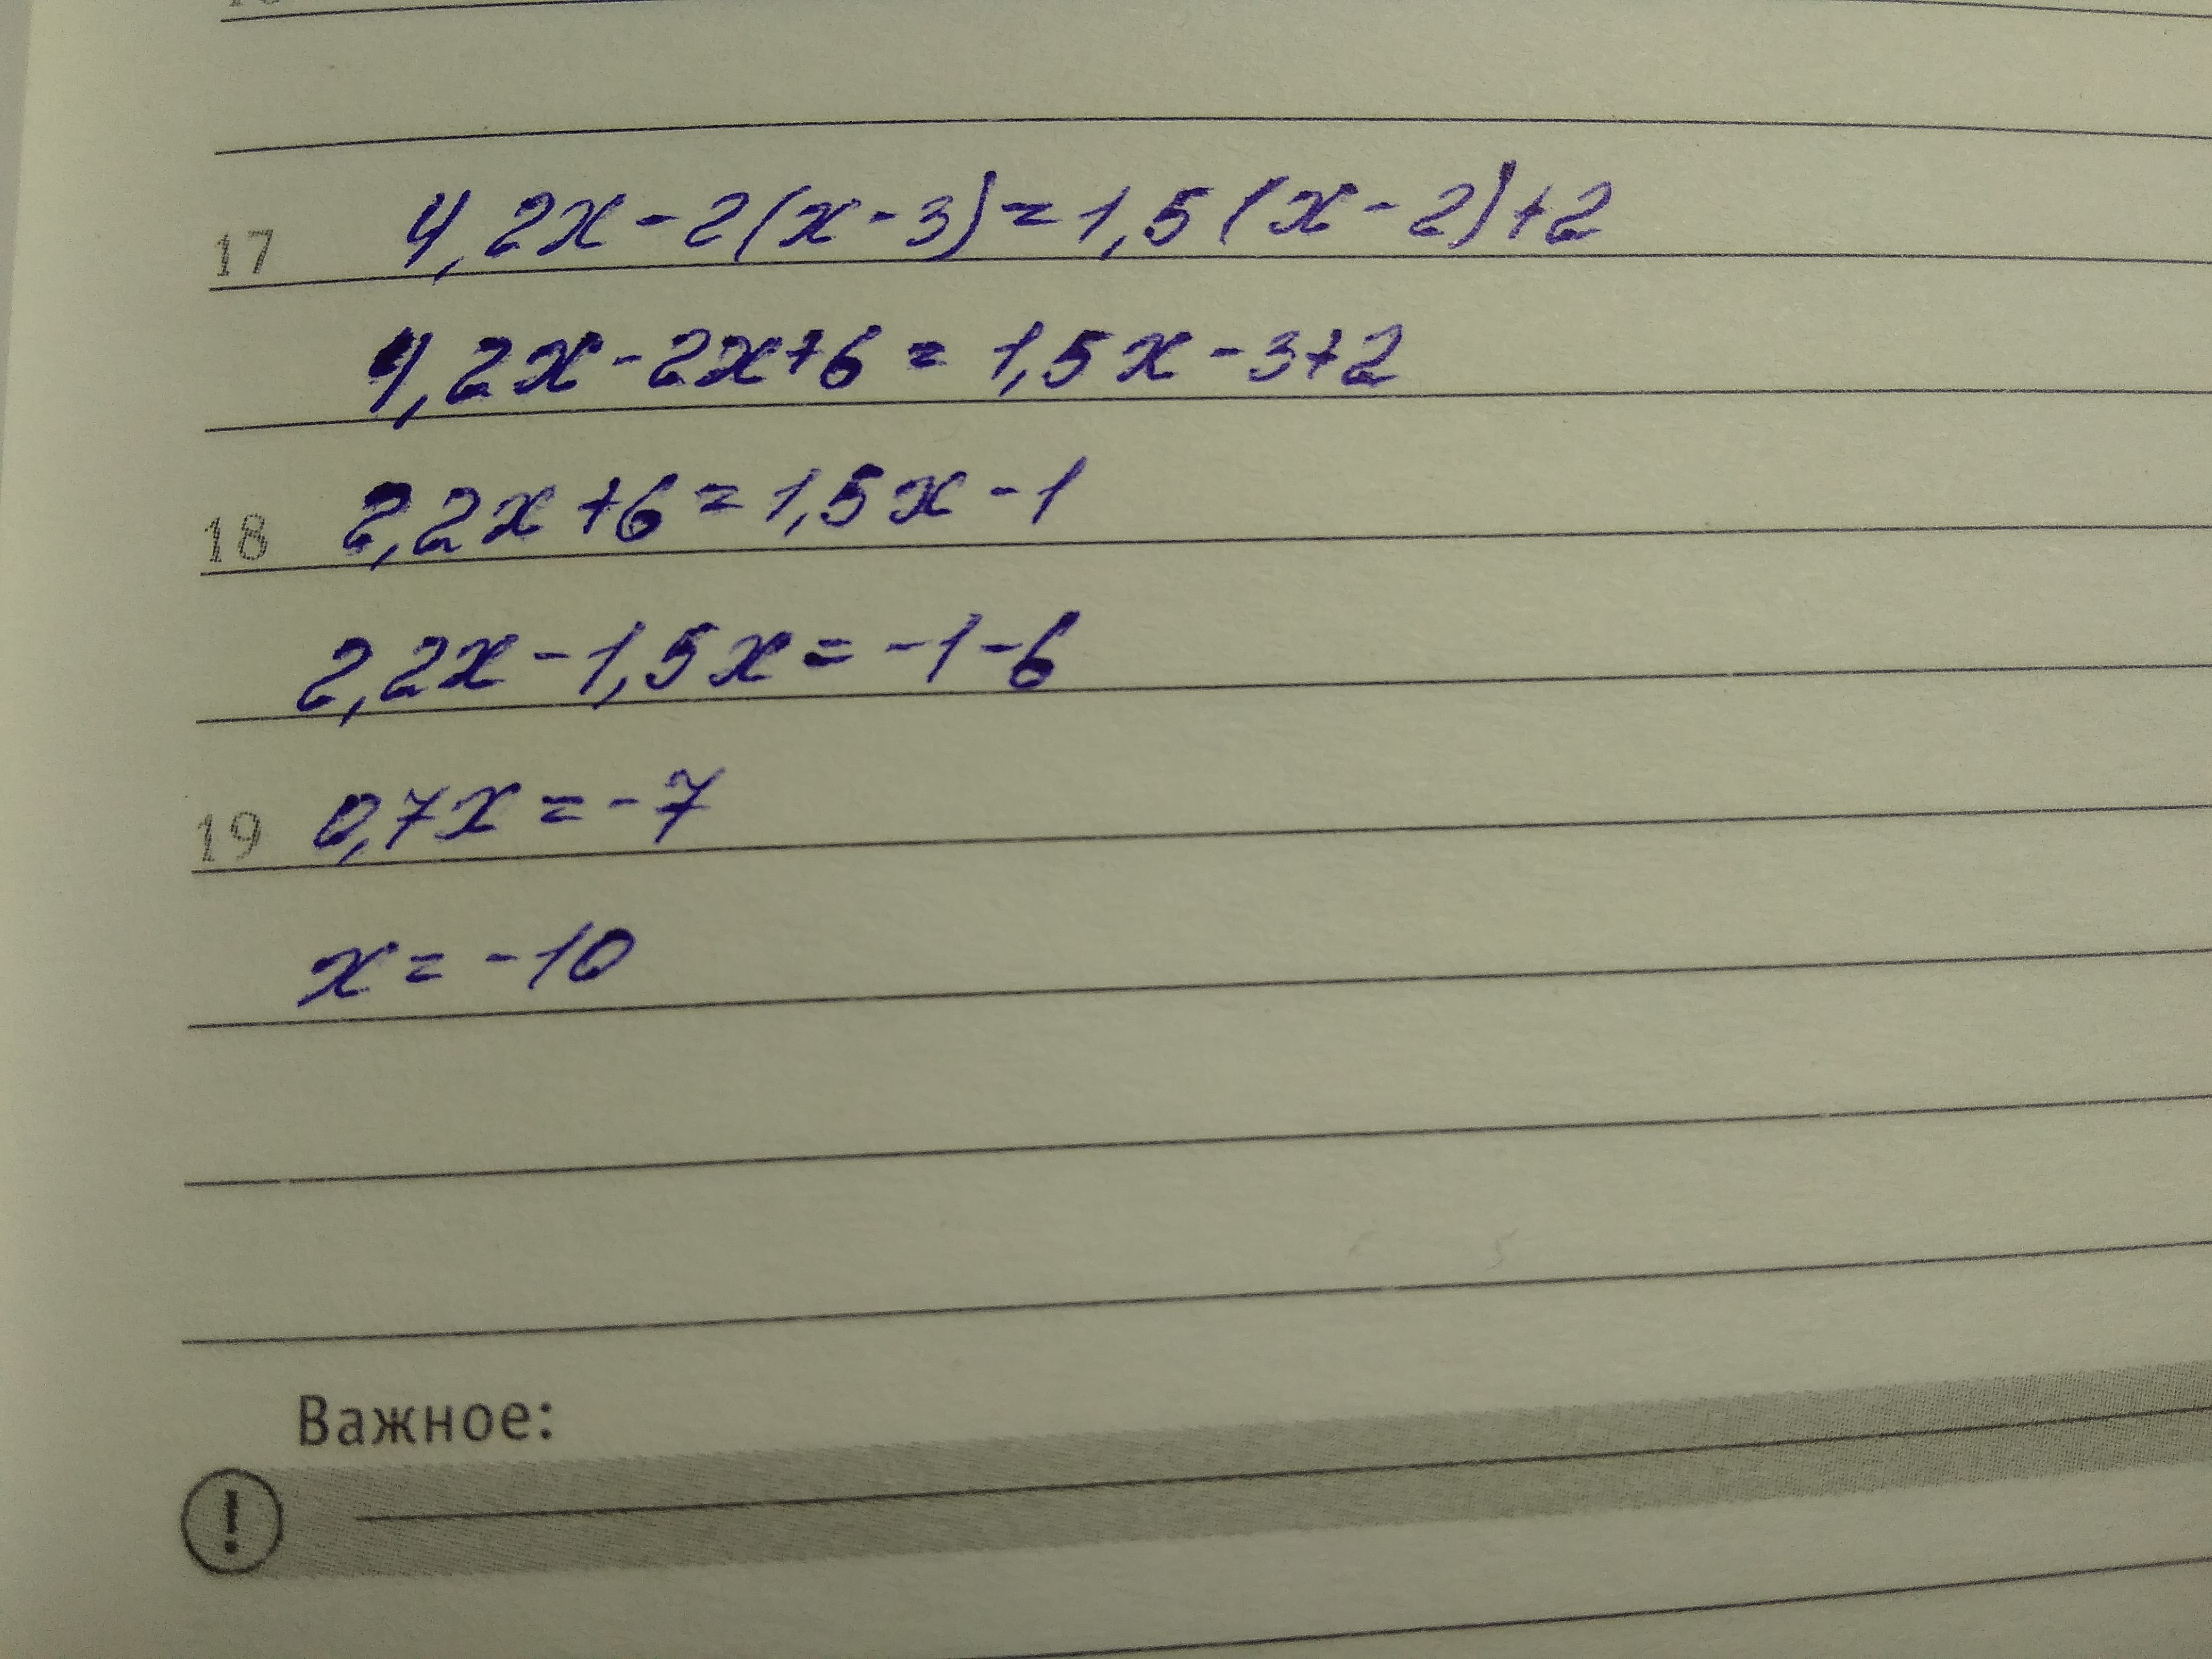 17 4,2x-2(x-3)=1,5(x-2)+2
4,2x-2x+6=1,5x-3+2
18 2,2x+6=1,5x-1
2,2x-1,5x=-1-6
19 0,7x=-7
x=-10
Важное:
!